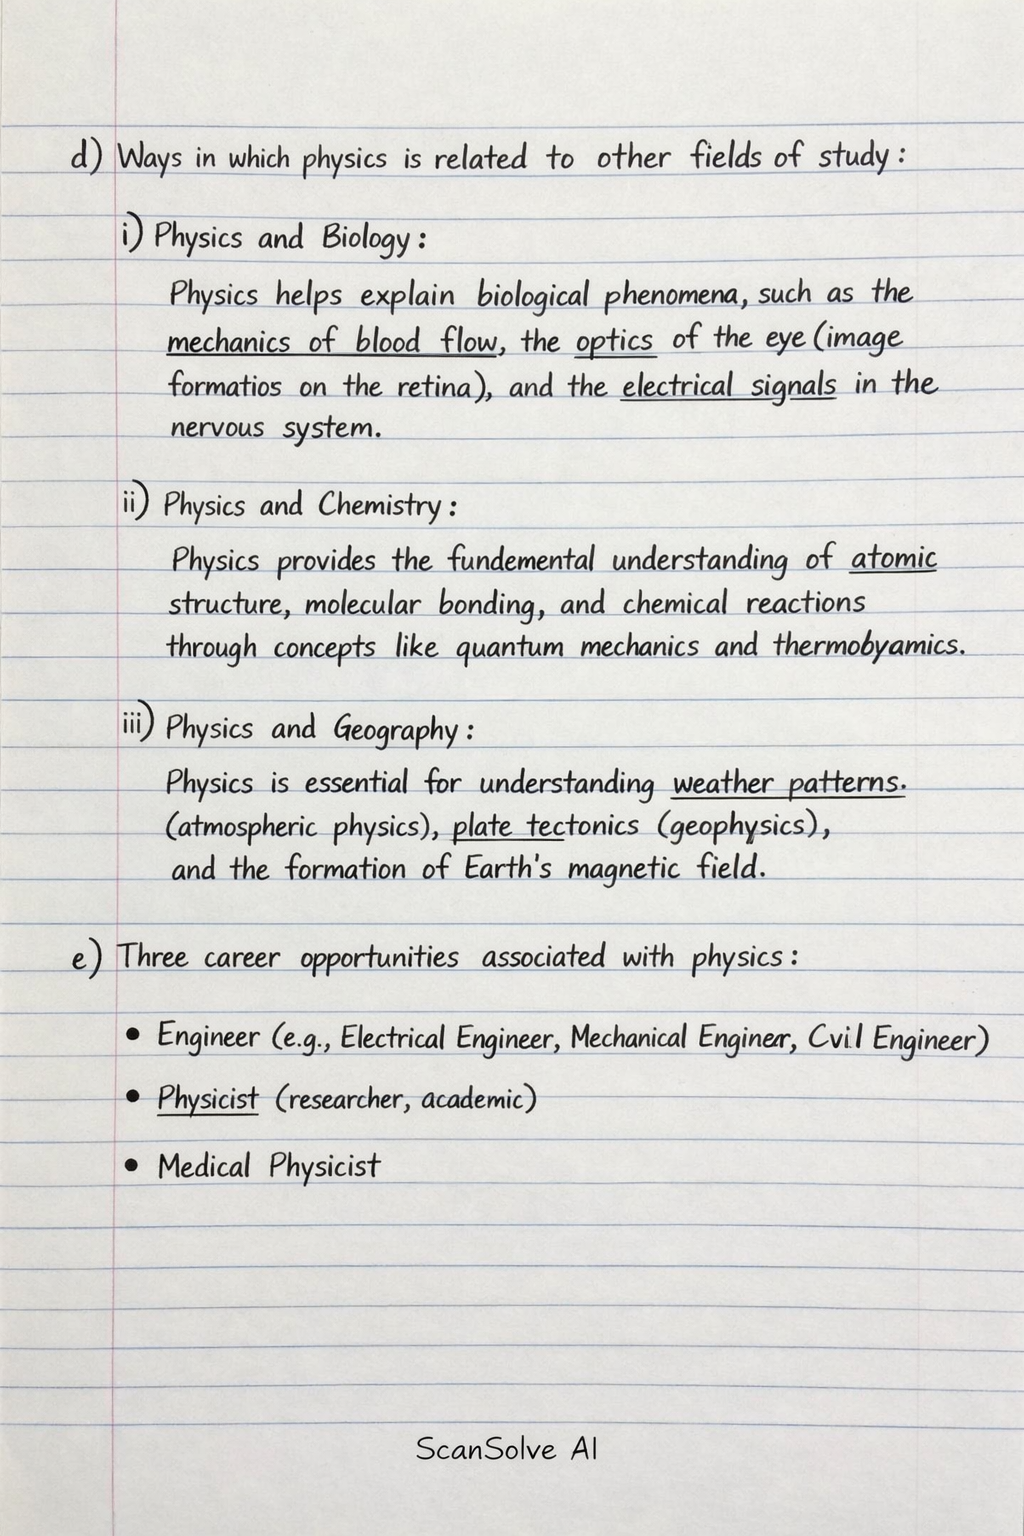 d) Ways in which physics is related to other fields of study:
i) Physics and Biology:
Physics helps explain biological phenomena, such as the
mechanics of blood flow, the optics of the eye (image
formatios on the retina), and the electrical signals in the
nervous system.
ii) Physics and Chemistry:
Physics provides the fundemental understanding of atomic
structure, molecular bonding, and chemical reactions
through concepts like quantum mechanics and thermobyamics.
iii) Physics and Geography:
Physics is essential for understanding weather patterns.
(atmospheric physics), plate tectonics (geophysics),
and the formation of Earth's magnetic field.
e) Three career opportunities associated with physics:
• Engineer (e.g., Electrical Engineer, Mechanical Enginer, Cvil Engineer)
• Physicist (researcher, academic)
• Medical Physicist
ScanSolve AI